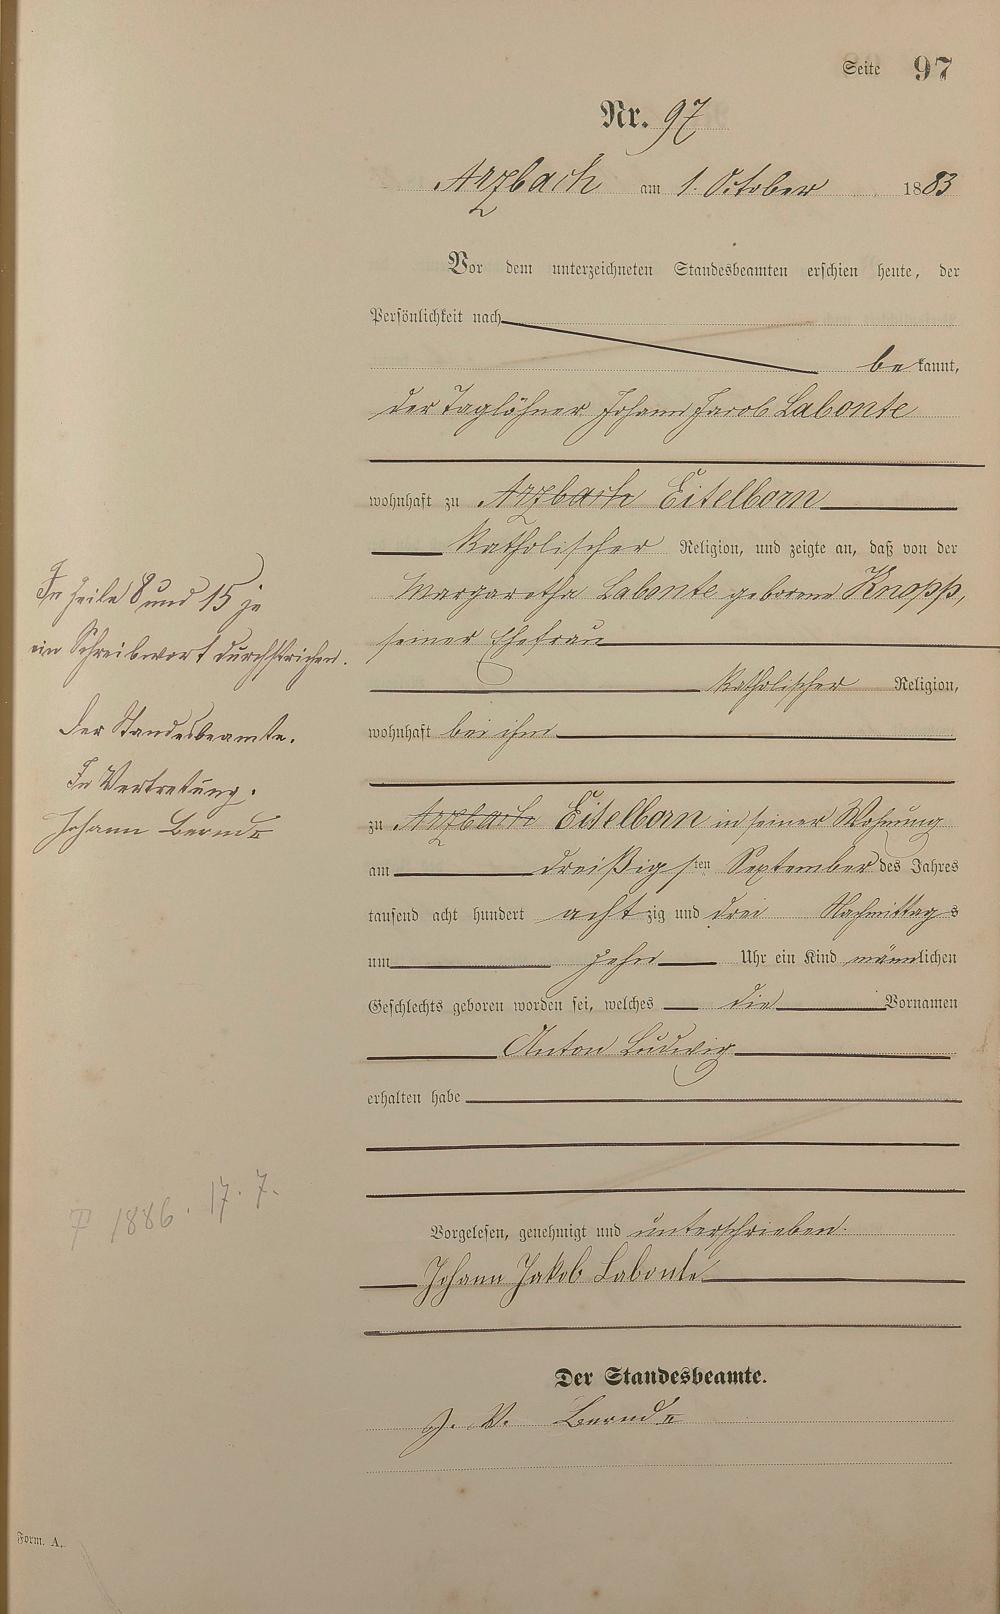 Seite 97
Nr. 97
Arzbach am 1. October 1883
Vor dem unterzeichneten Standesbeamten erschien heute, der
Persönlichkeit nach
bekannt,
der Taglöhner Johann Jacob Labonte
wohnhaft zu Arzbach Eitelborn
katholischer Religion, und zeigte an, daß von der
Margaretha Labonte geborene Knopp,
seiner Ehefrau
katholischer Religion,
wohnhaft bei ihm
zu Arzbach Eitelborn in seiner Wohnung
am dreißigsten September des Jahres
tausend acht hundert achtzig und drei Nachmittags
um zehn Uhr ein Kind männlichen
Geschlechts geboren worden sei, welches die Vornamen
Anton Ludwig
erhalten habe
Vorgelesen, genehmigt und unterschrieben.
Johann Jakob Labonte
Der Standesbeamte.
J. V. Bernde
In Zeile 8 und 15 je
ein Schreibwort durchstrichen.
Der Standesbeamte.
In Vertretung.
Johann Bernde
1886. 17. 7.
Form. A.